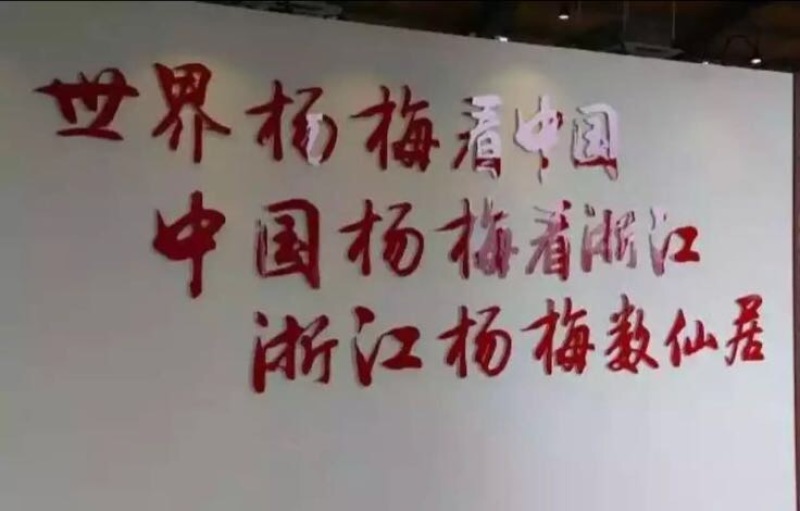 世界杨梅看中国
中国杨梅看浙江
浙江杨梅数仙居